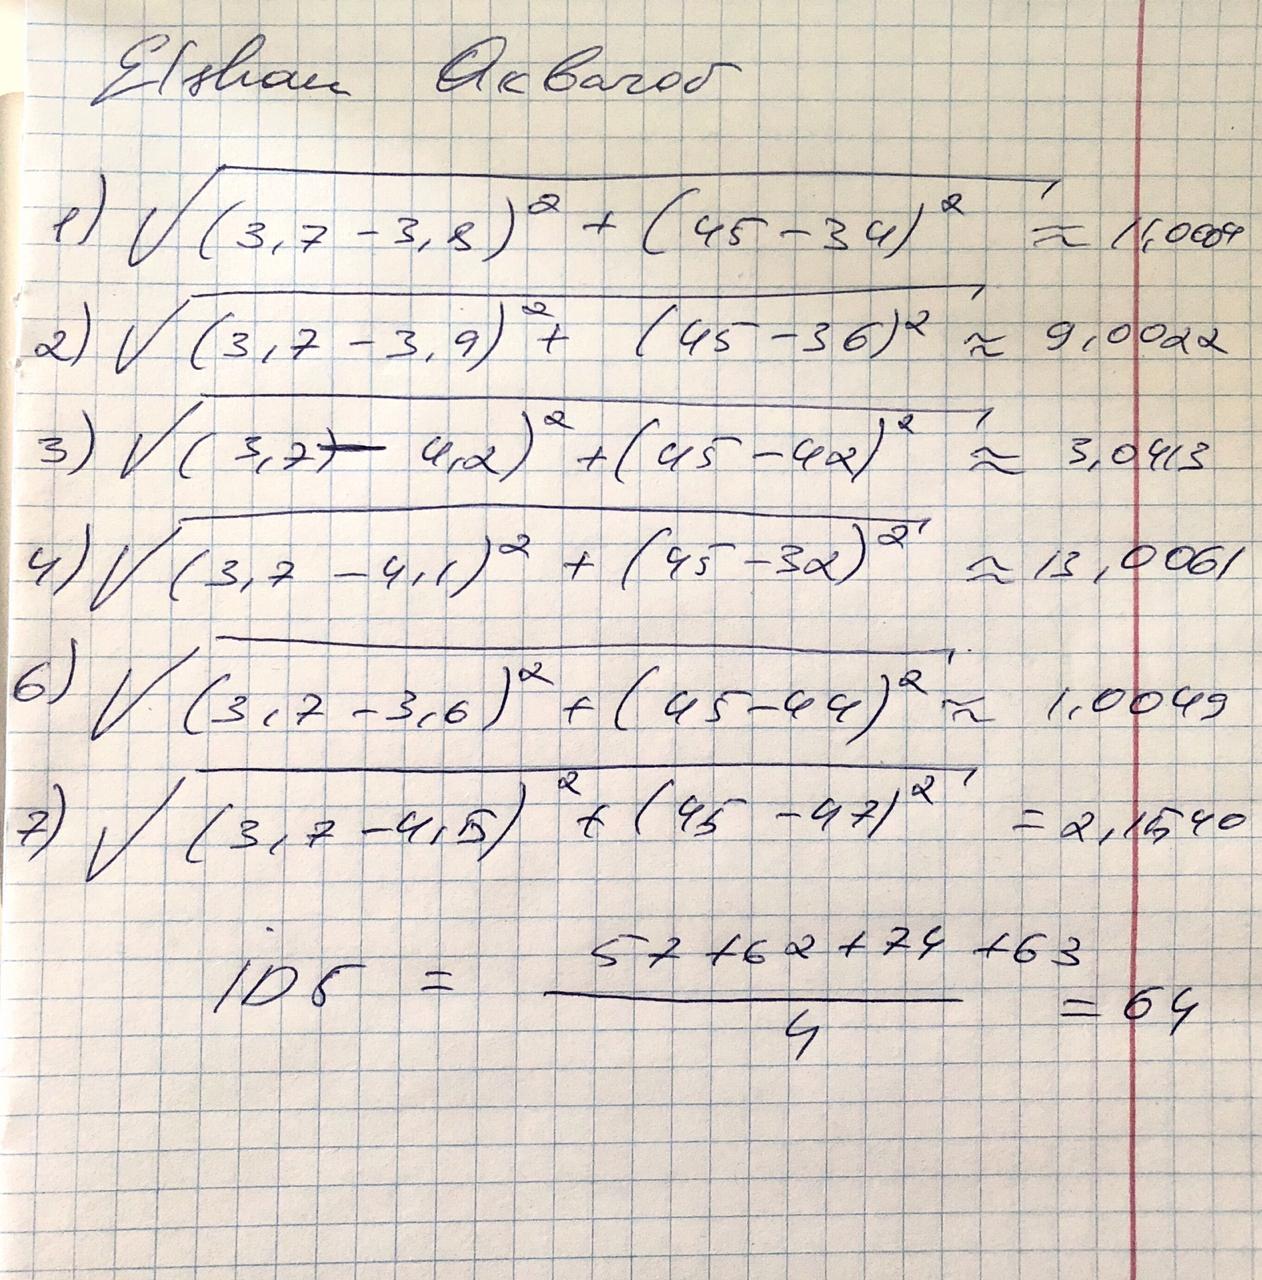 Elshan
1) √(3,7 - 3,8)² + (45 - 34)² ≈ 11,0004
2) √(3,7 - 3,9)² + (45 - 36)² ≈ 9,0022
3) √(3,7) - 4,2)² + (45 - 42)² ≈ 3,0413
4) √(3,7 - 4,1)² + (45 - 32)² ≈ 13,0061
6) √(3,7 - 3,6)² + (45 - 44)² ≈ 1,0049
7) √(3,7 - 4,5)² + (45 - 47)² = 2,1540
ID5 = 57 + 62 + 74 + 63
= 64
4